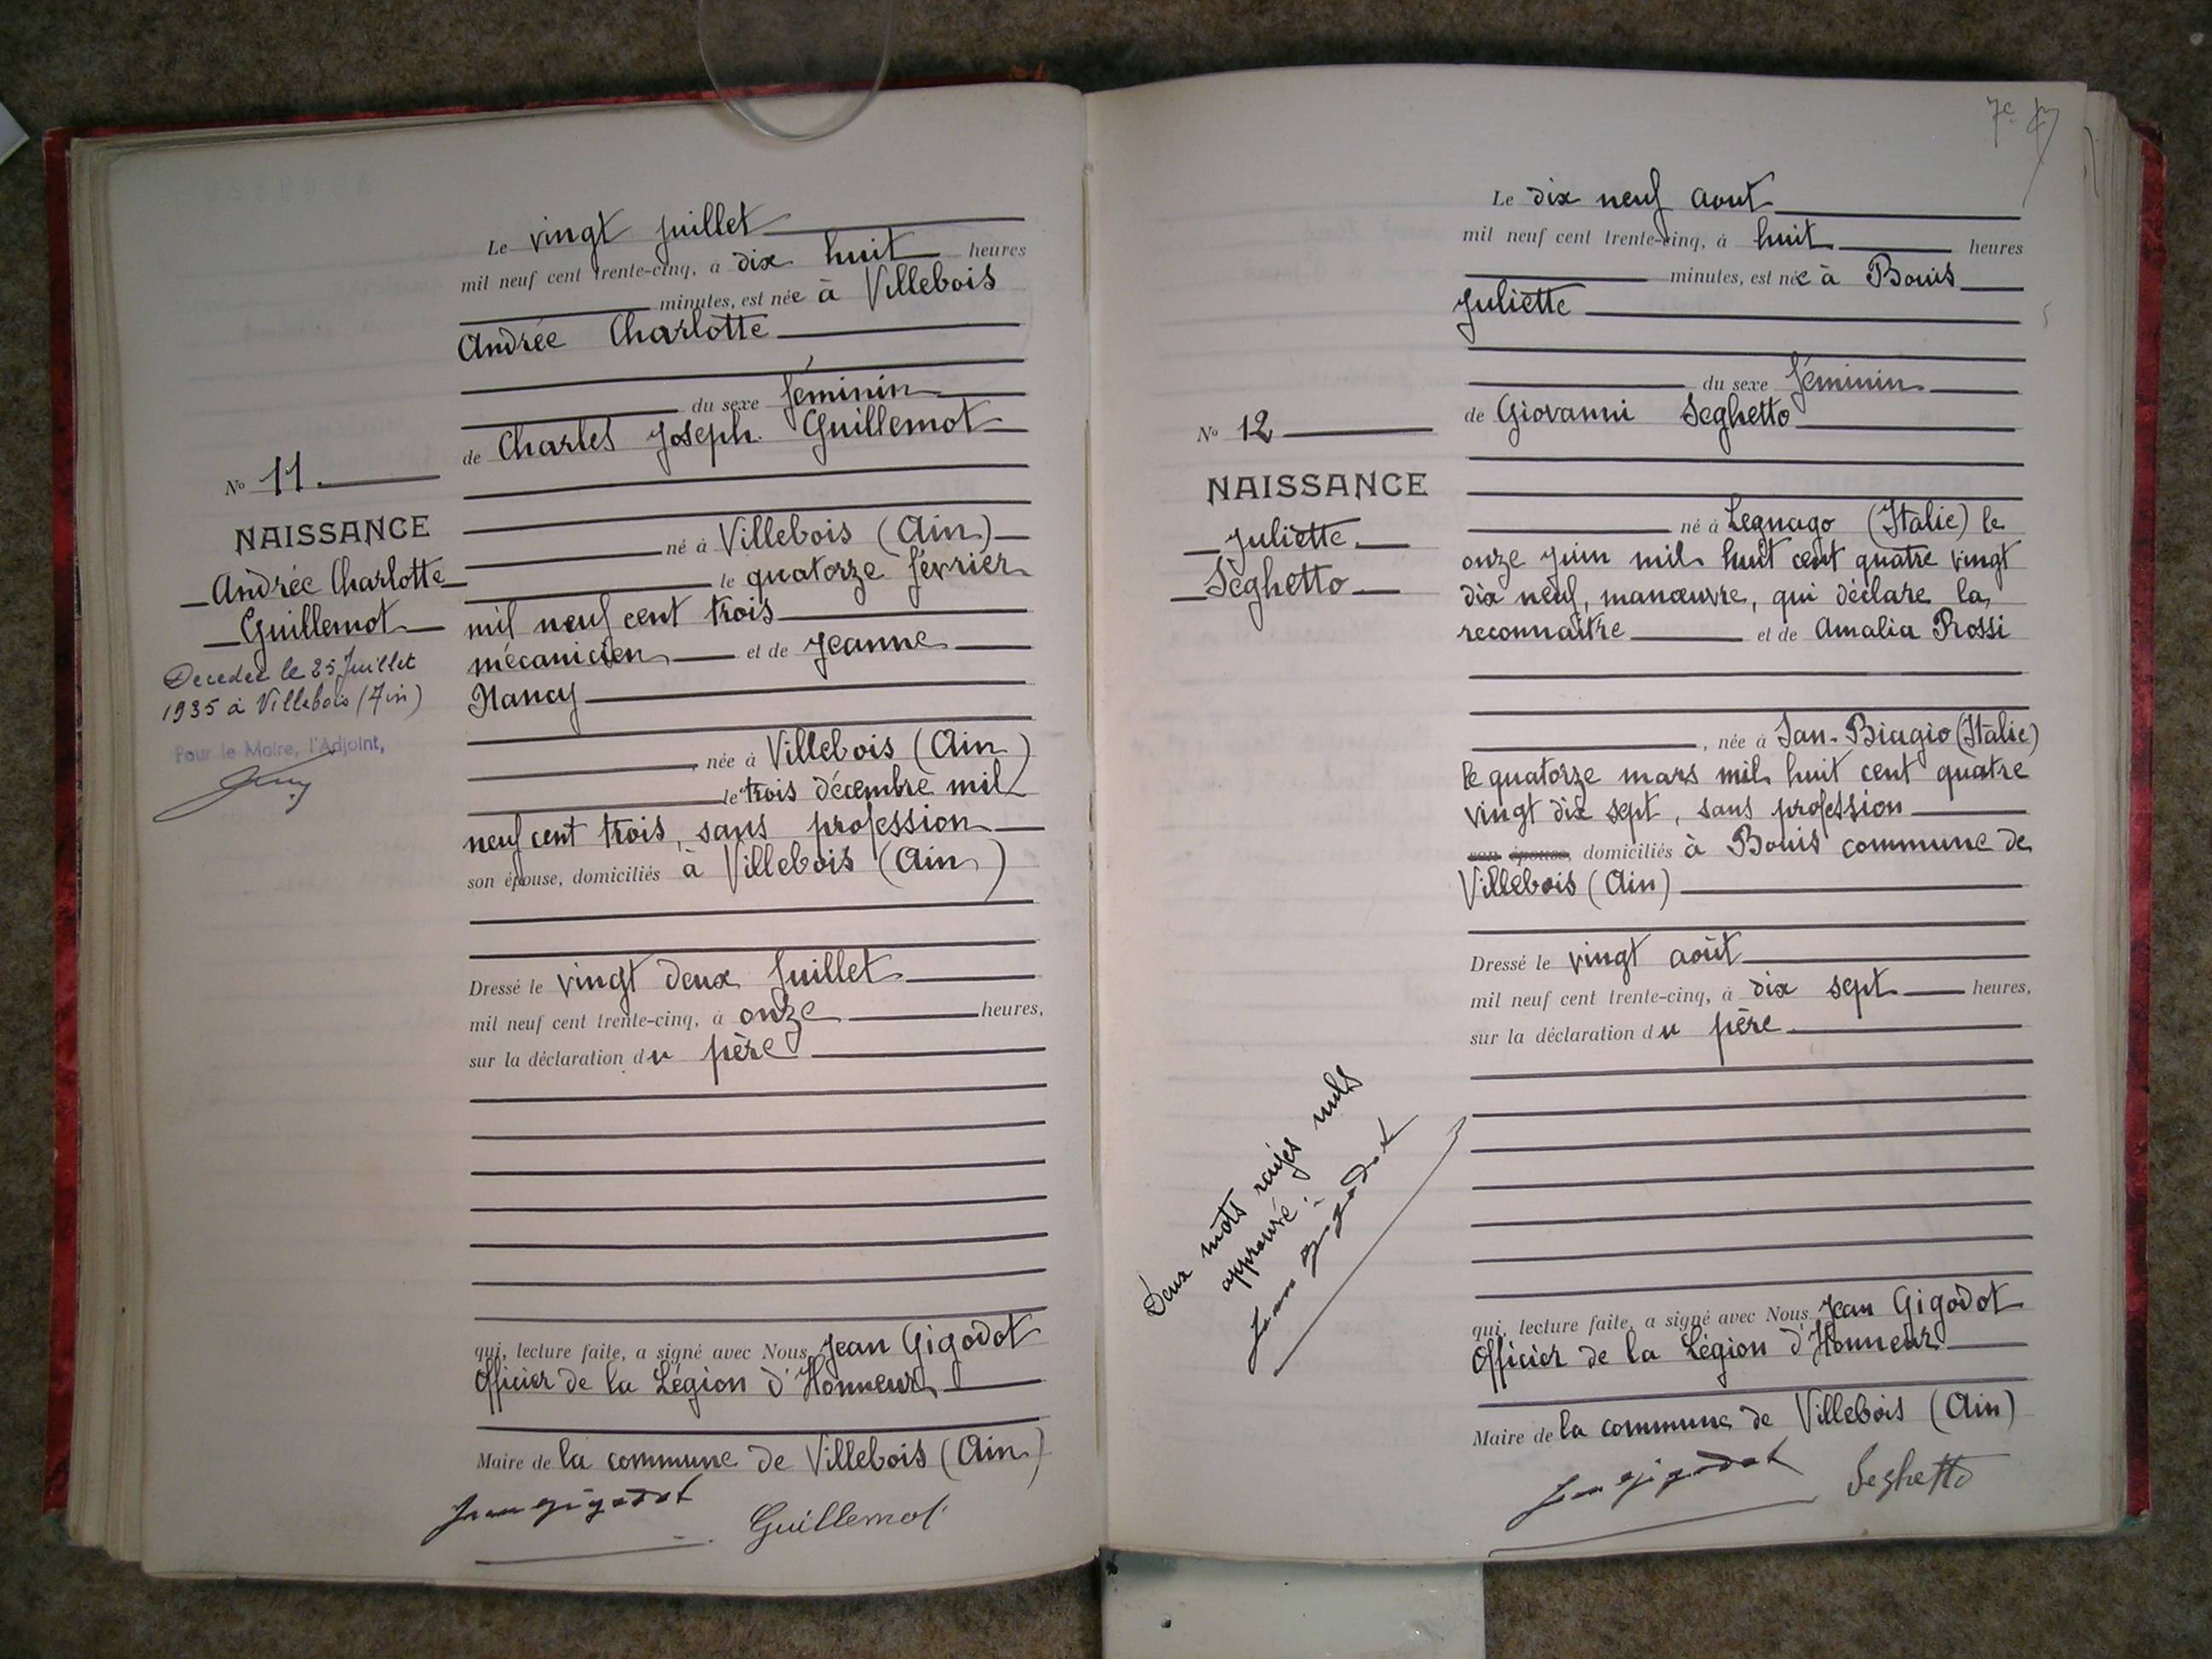 Le vingt juillet
mil neuf cent trente-cinq, à dix huit heures
minutes, est née à Villebois
Andrée Charlotte
du sexe féminin
de Charles Joseph Guillemot
né à Villebois (Ain)
le quatorze février
mil neuf cent trois
mécanicien et de Jeanne
Nancy
, née à Villebois (Ain)
le trois décembre mil
neuf cent trois, sans profession
son épouse, domiciliés à Villebois (Ain)
Dressé le vingt deux juillet
mil neuf cent trente-cinq, à onze heures,
sur la déclaration du père
qui, lecture faite, a signé avec Nous Jean Gigodot
Officier de la Légion d'Honneur
Maire de la commune de Villebois (Ain)
Jean Gigodot Guillemot
No 11
NAISSANCE
Andrée Charlotte
Guillemot
Decedée le 25 Juillet
1935 à Villebois (Ain)
Pour le Maire, l'Adjoint,
7e
Le dix neuf aout
mil neuf cent trente-cinq, à huit heures
minutes, est née à Bouis
Juliette
du sexe féminin
de Giovanni Seghetto
né à Legnago (Italie) le
onze juin mil huit cent quatre vingt
dix neuf, manœuvre, qui déclare la
reconnaître et de Amalia Rossi
, née à San-Biagio (Italie)
le quatorze mars mil huit cent quatre
vingt dix sept, sans profession
son épouse, domiciliés à Bouis commune de
Villebois (Ain)
Dressé le vingt août
mil neuf cent trente-cinq, à dix sept heures,
sur la déclaration du père
qui, lecture faite, a signé avec Nous Jean Gigodot
Officier de la Légion d'Honneur
Maire de la commune de Villebois (Ain)
Jean Gigodot Seghetto
No 12
NAISSANCE
Juliette
Seghetto
Deux mots rayés nuls
approuvé :
Jean Gigodot